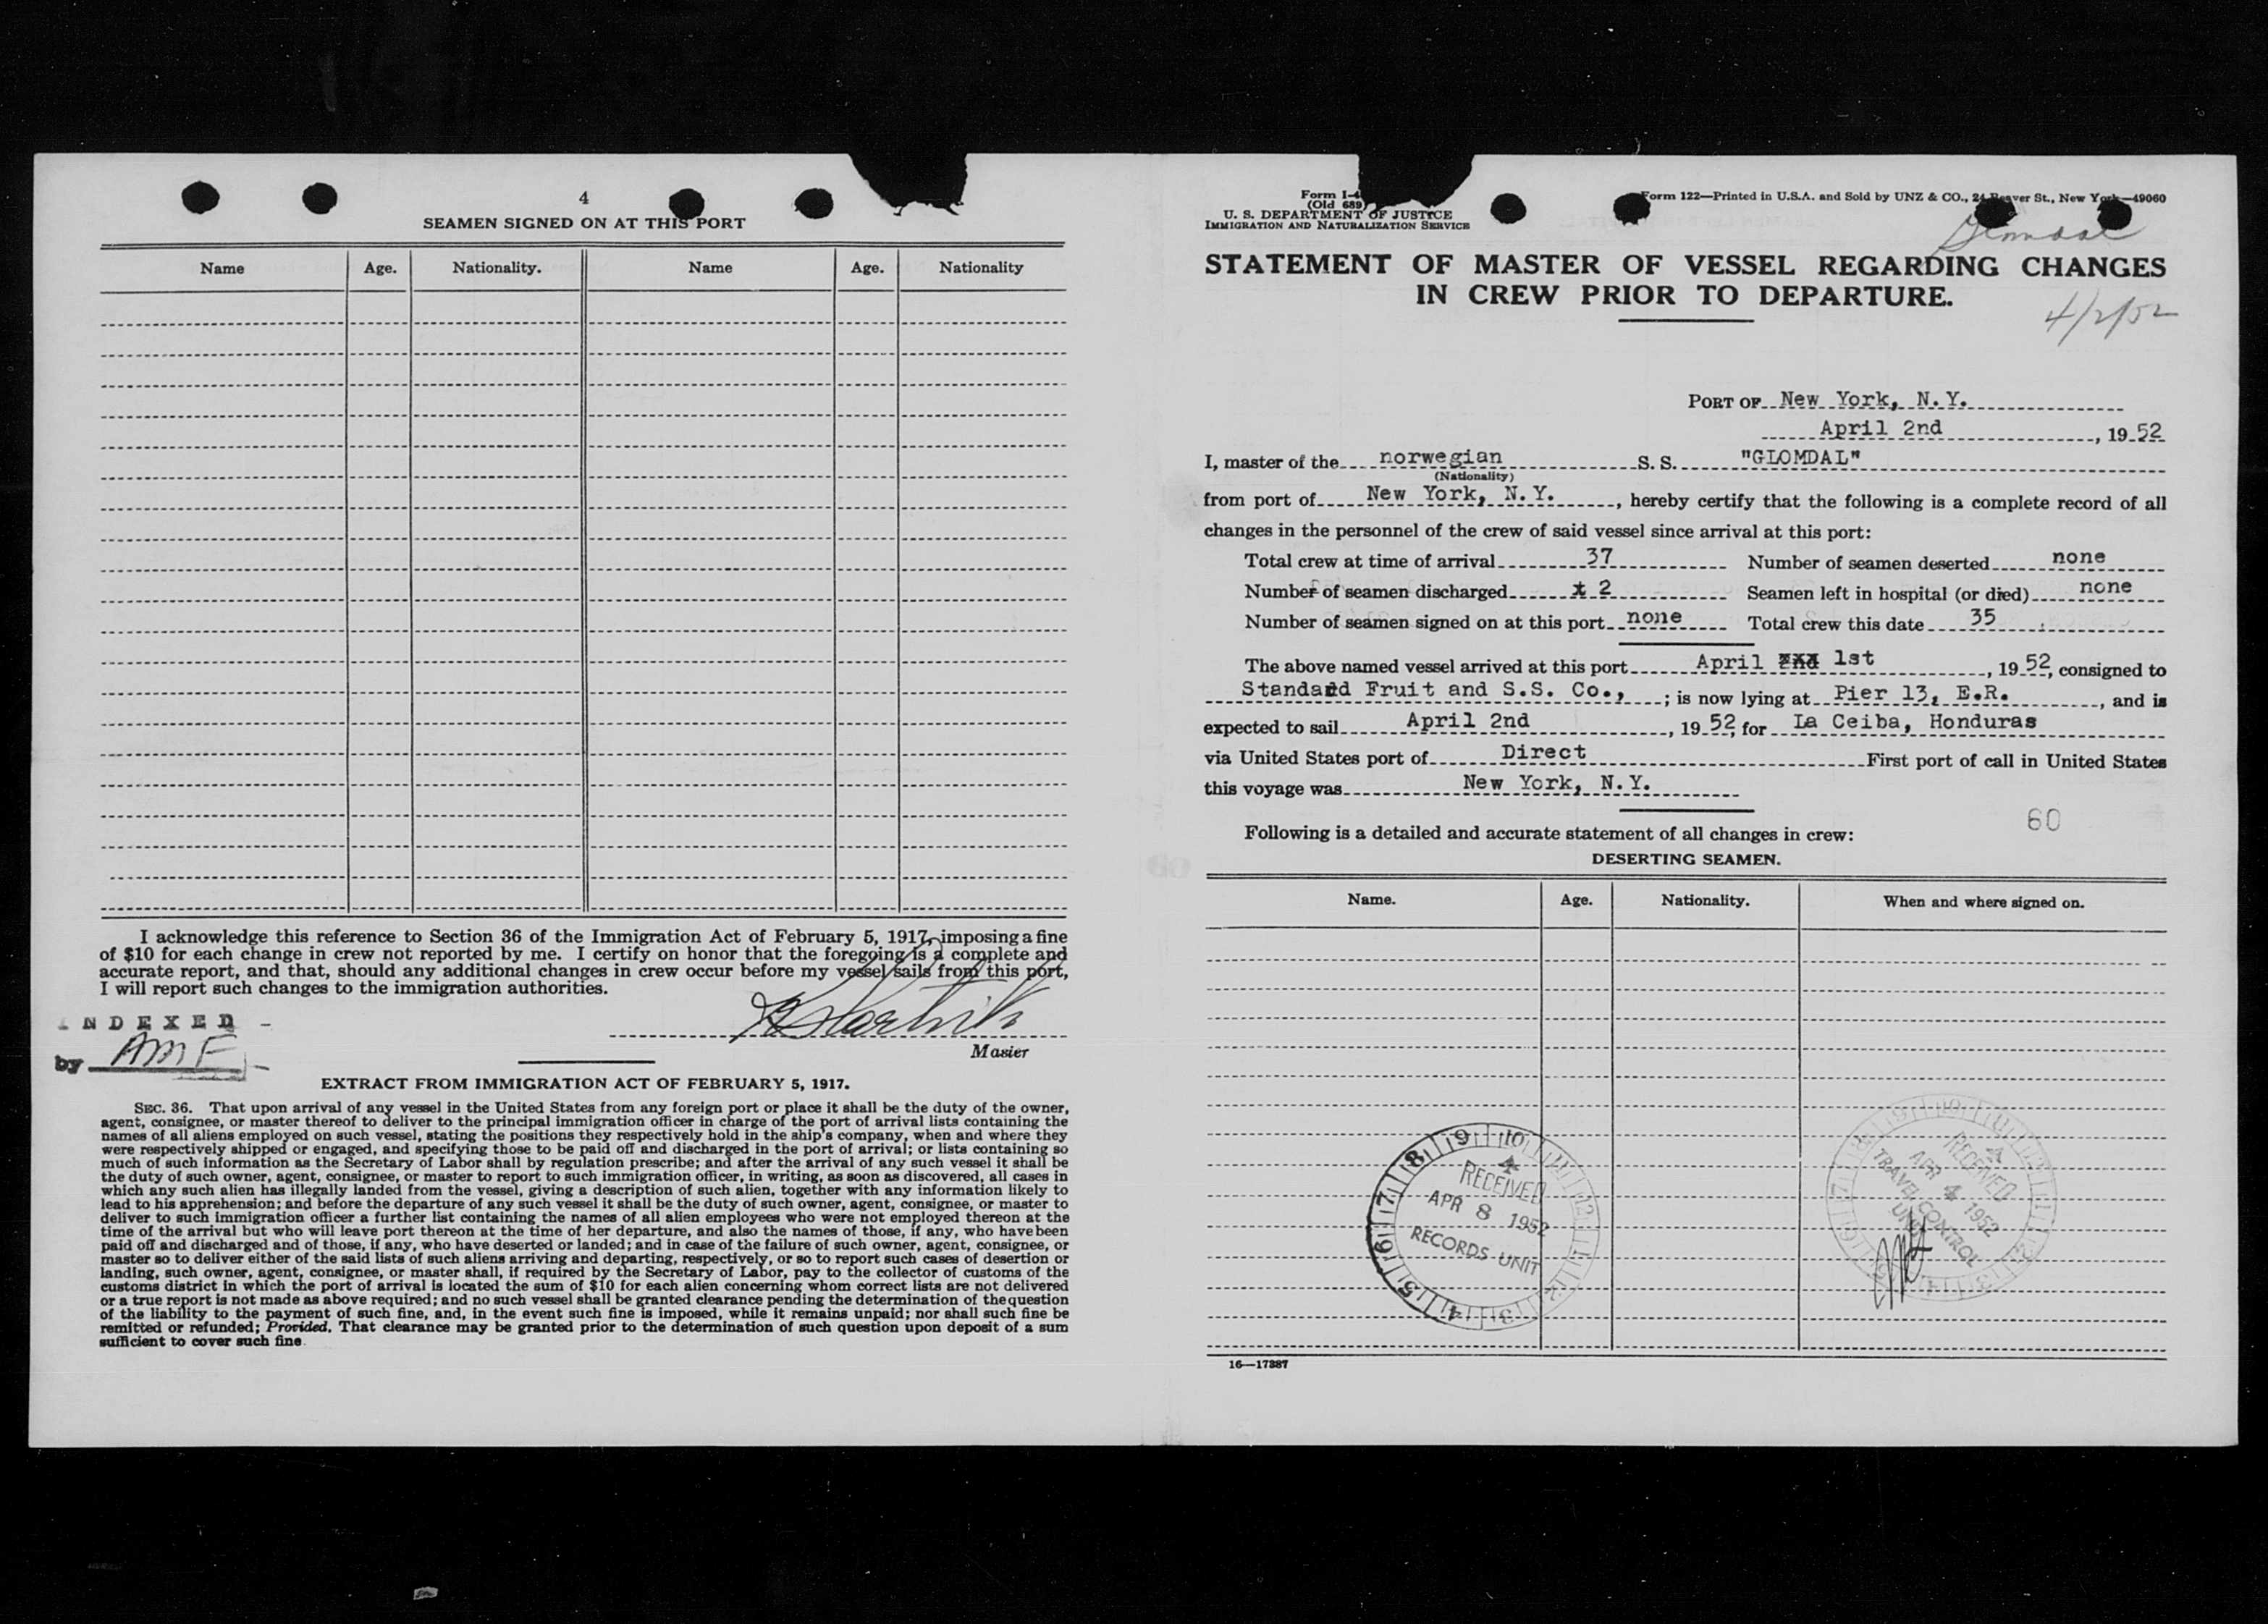 4
SEAMEN SIGNED ON AT THIS PORT
Name Age. Nationality. Name Age. Nationality
I acknowledge this reference to Section 36 of the Immigration Act of February 5, 1917, imposing a fine
of $10 for each change in crew not reported by me. I certify on honor that the foregoing is a complete and
accurate report, and that, should any additional changes in crew occur before my vessel sails from this port,
I will report such changes to the immigration authorities.
INDEXED
by AMF
Master
EXTRACT FROM IMMIGRATION ACT OF FEBRUARY 5, 1917.
SEC. 36. That upon arrival of any vessel in the United States from any foreign port or place it shall be the duty of the owner,
agent, consignee, or master thereof to deliver to the principal immigration officer in charge of the port of arrival lists containing the
names of all aliens employed on such vessel, stating the positions they respectively hold in the ship's company, when and where they
were respectively shipped or engaged, and specifying those to be paid off and discharged in the port of arrival; or lists containing so
much of such information as the Secretary of Labor shall by regulation prescribe; and after the arrival of any such vessel it shall be
the duty of such owner, agent, consignee, or master to report to such immigration officer, in writing, as soon as discovered, all cases in
which any such alien has illegally landed from the vessel, giving a description of such alien, together with any information likely to
lead to his apprehension; and before the departure of any such vessel it shall be the duty of such owner, agent, consignee, or master to
deliver to such immigration officer a further list containing the names of all alien employees who were not employed thereon at the
time of the arrival but who will leave port thereon at the time of her departure, and also the names of those, if any, who have been
paid off and discharged and of those, if any, who have deserted or landed; and in case of the failure of such owner, agent, consignee, or
master so to deliver either of the said lists of such aliens arriving and departing, respectively, or so to report such cases of desertion or
landing, such owner, agent, consignee, or master shall, if required by the Secretary of Labor, pay to the collector of customs of the
customs district in which the port of arrival is located the sum of $10 for each alien concerning whom correct lists are not delivered
or a true report is not made as above required; and no such vessel shall be granted clearance pending the determination of the question
of the liability to the payment of such fine, and, in the event such fine is imposed, while it remains unpaid; nor shall such fine be
remitted or refunded; Provided, That clearance may be granted prior to the determination of such question upon deposit of a sum
sufficient to cover such fine.
Form I-4
(Old 689)
U. S. DEPARTMENT OF JUSTICE
IMMIGRATION AND NATURALIZATION SERVICE
Form 122—Printed in U.S.A. and Sold by UNZ & CO., 24 Beaver St., New York—49060
Glomdal
STATEMENT OF MASTER OF VESSEL REGARDING CHANGES
IN CREW PRIOR TO DEPARTURE.
4/2/52
PORT OF New York, N.Y.
April 2nd, 1952
I, master of the norwegian S. S. "GLOMDAL"
(Nationality)
from port of New York, N.Y., hereby certify that the following is a complete record of all
changes in the personnel of the crew of said vessel since arrival at this port:
Total crew at time of arrival 37 Number of seamen deserted none
Number of seamen discharged x 2 Seamen left in hospital (or died) none
Number of seamen signed on at this port none Total crew this date 35
The above named vessel arrived at this port April 1st, 1952, consigned to
Standard Fruit and S.S. Co., ; is now lying at Pier 13, E.R., and is
expected to sail April 2nd, 1952, for La Ceiba, Honduras
via United States port of Direct First port of call in United States
this voyage was New York, N.Y.
60
Following is a detailed and accurate statement of all changes in crew:
DESERTING SEAMEN.
Name. Age. Nationality. When and where signed on.
RECEIVED
APR 8 1952
RECORDS UNIT
RECEIVED
APR 4 1952
TRAVEL CONTROL
UNIT
16—17387